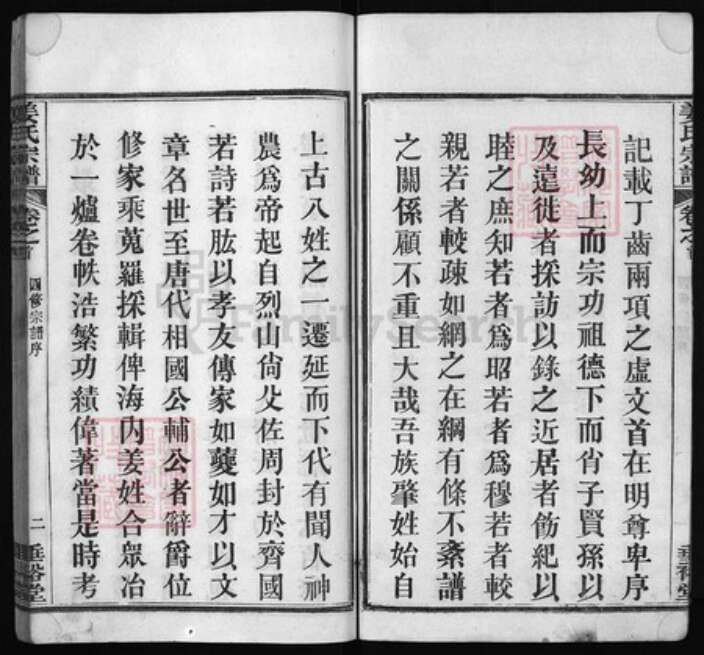 記載丁齒兩項之虛文首在明尊卑序
長幼上而宗功祖德下而肖子賢孫以
及遠徙者採訪以錄之近居者飭紀以
睦之庶知若者為昭若者為穆若者較
親若者較疎如網之在綱有條不紊譜
之關係顧不重且大哉吾族肇姓始自
上古八姓之一遷延而下代有聞人神
農爲帝起自烈山尙父佐周封於齊國
若詩若肱以孝友傳家如夔如才以文
章名世至唐代相國公輔公者辭爵位
修家乘蒐羅採輯俾海內姜姓合眾冶
於一爐卷帙浩繁功績偉著當是時考
姜氏宗譜
卷之首
四修宗譜序
二
垂裕堂
FamilySearch